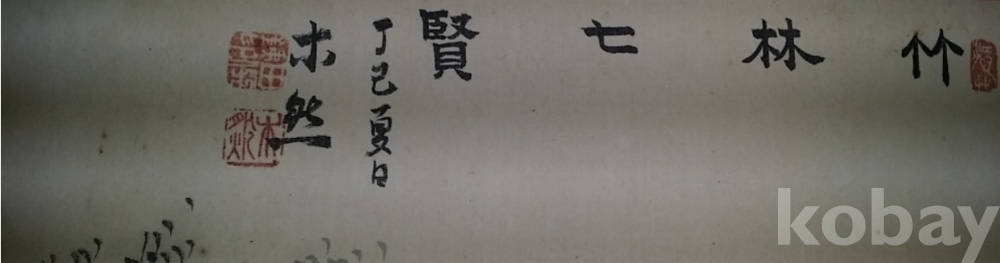 竹林七賢
丁巳夏日
木然
kobay